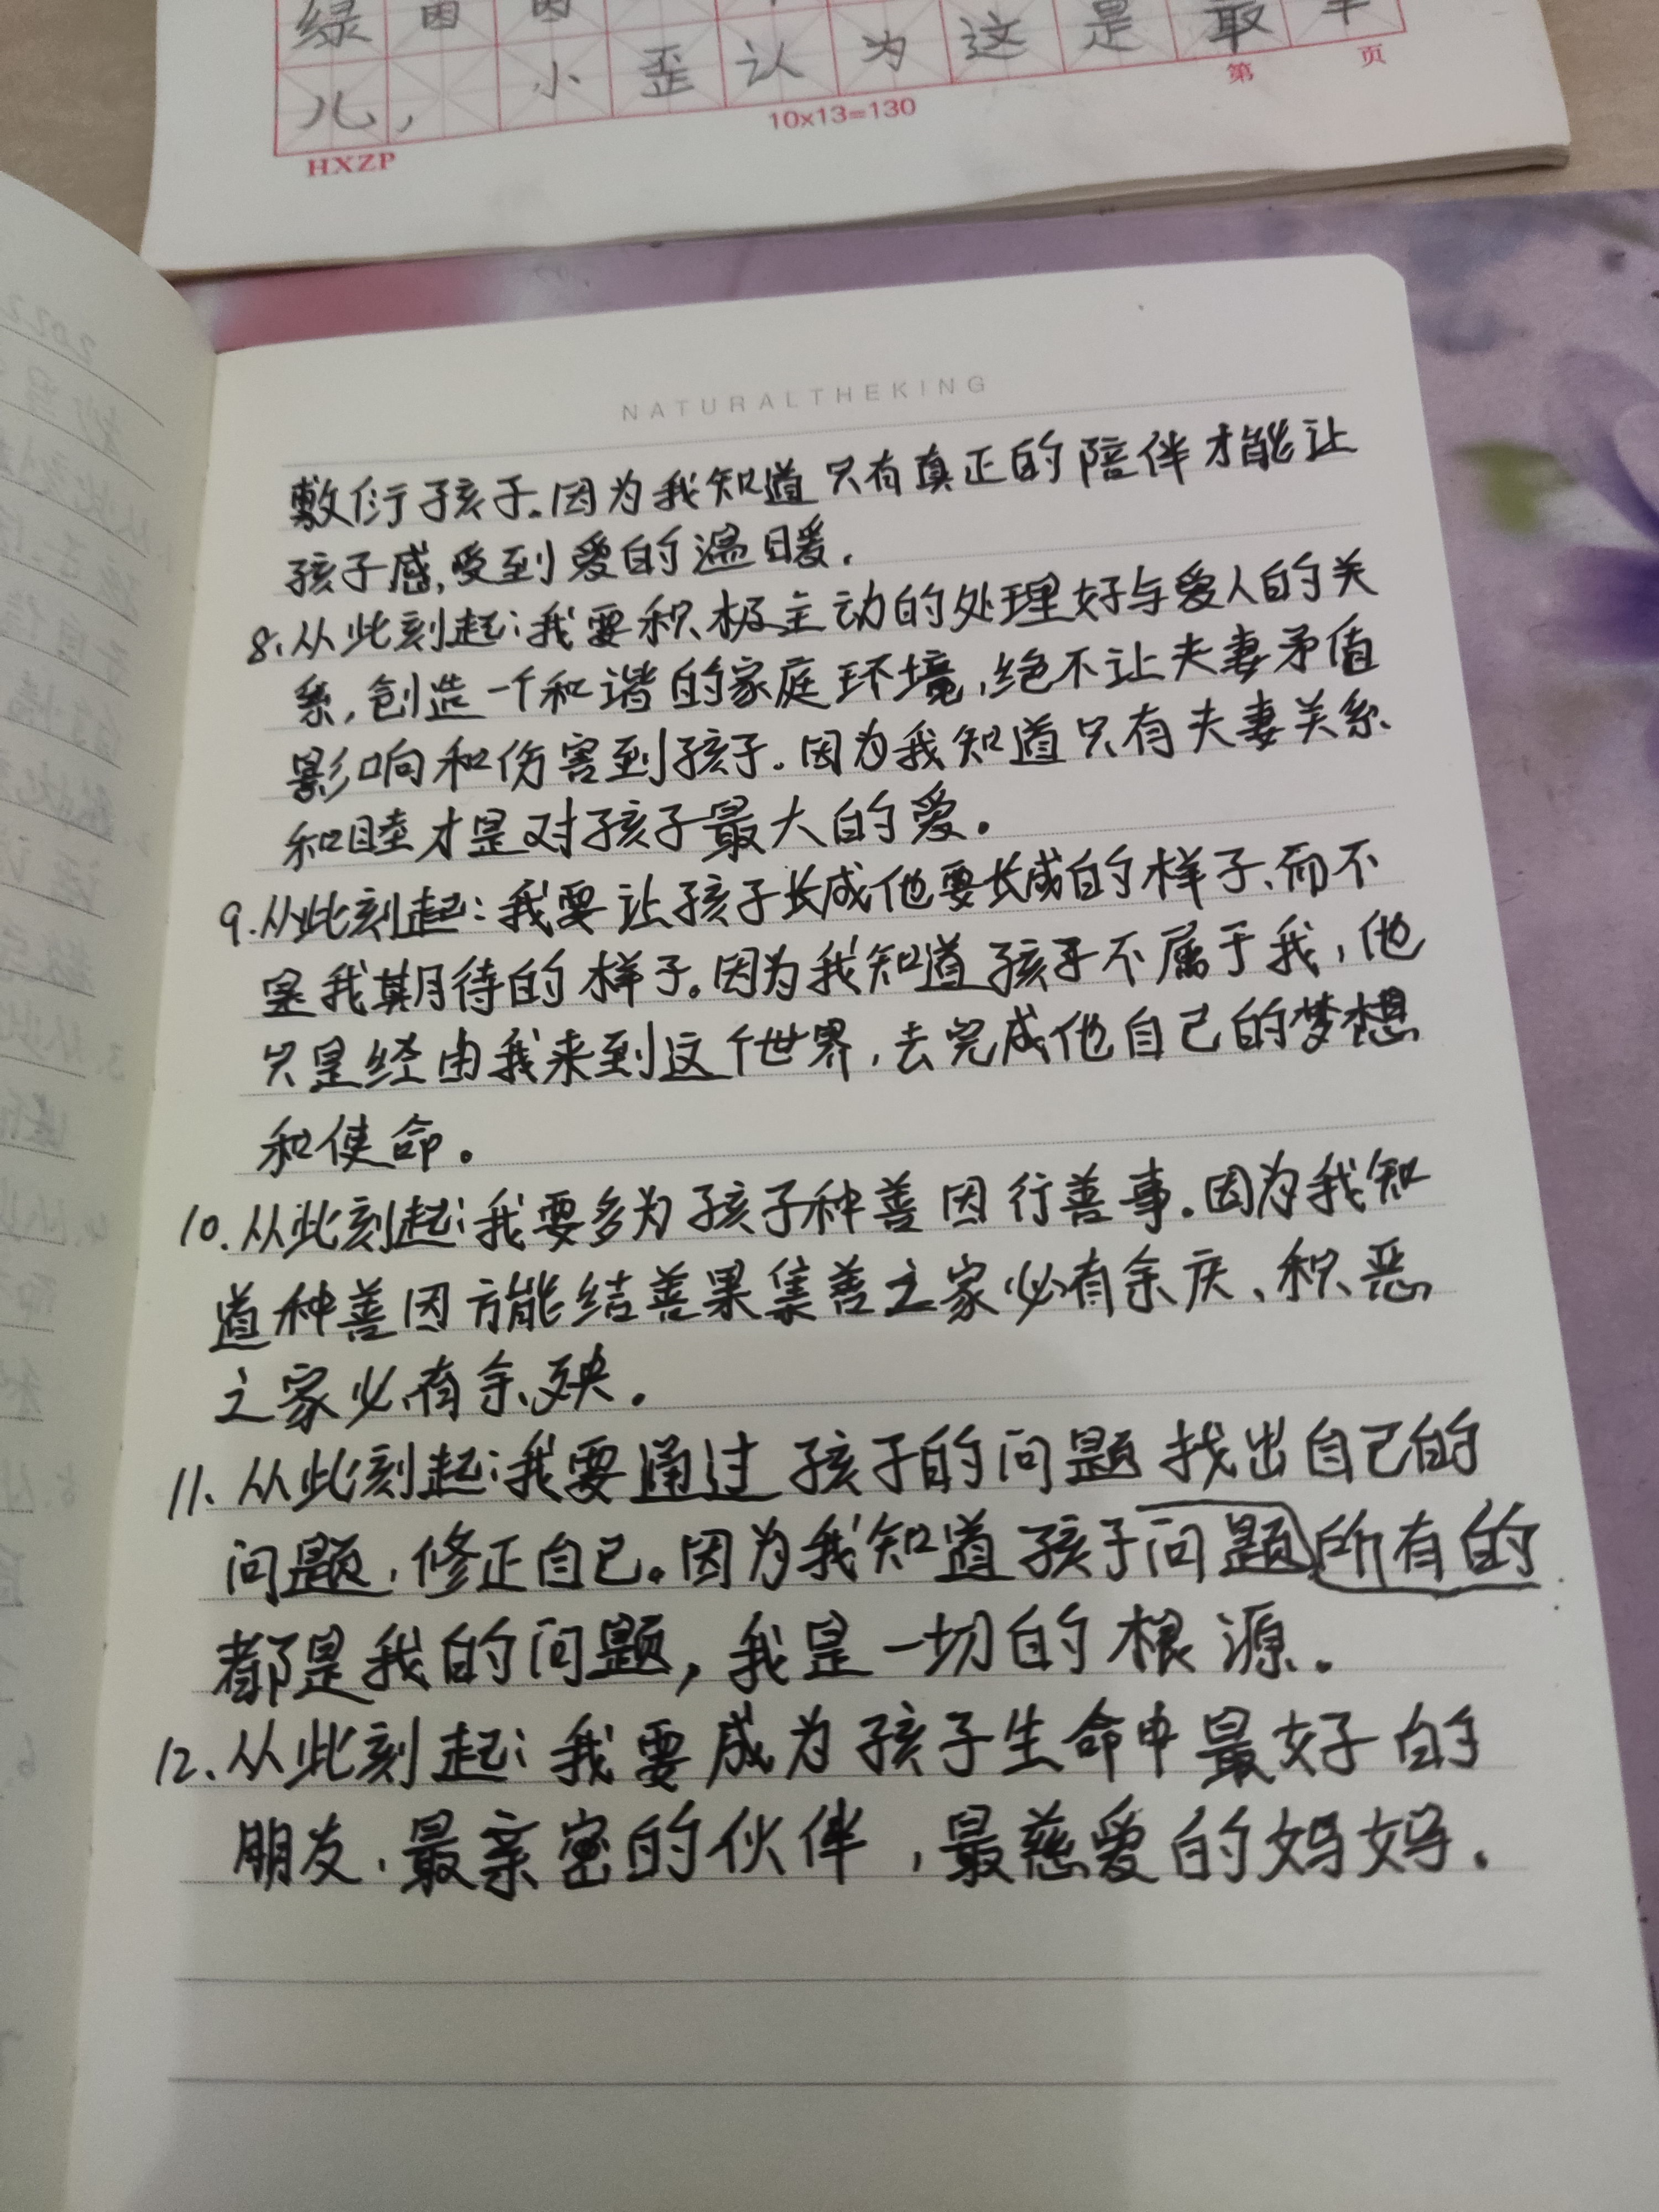 绿
儿， 小歪认为这是最
第 页
10x13=130
HXZP
NATURALTHEKING
敷衍孩子.因为我知道只有真正的陪伴才能让
孩子感,受到爱的温暖.
8.从此刻起:我要积极主动的处理好与爱人的关
系,创造一个和谐的家庭环境,绝不让夫妻矛值
影响和伤害到孩子.因为我知道只有夫妻关系
和睦才是对孩子最大的爱。
9.从此刻起:我要让孩子长成他要长成的样子、而不
是我期待的样子。因为我知道孩子不属于我，他
只是经由我来到这个世界,去完成他自己的梦想
和使命。
10.从此刻起:我要多为孩子种善因行善事.因为我知
道种善因方能结善果集善之家必有余庆、积恶
之家必有余殃.
11.从此刻起:我要通过孩子的问题找出自己的
问题,修正自己。因为我知道孩子问题所有的
都是我的问题，我是一切的根源.
12.从此刻起:我要成为孩子生命中最好的
朋友.最亲密的伙伴,最慈爱的妈妈.